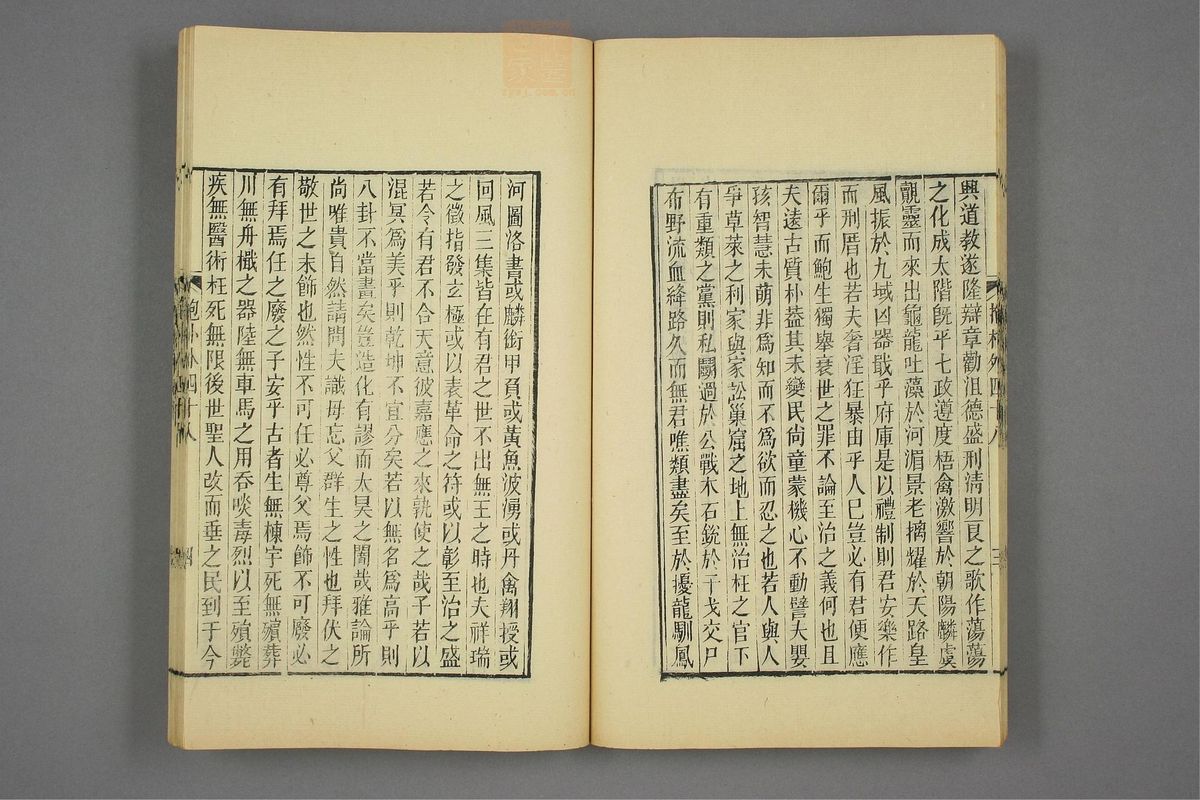 興道教遂隆辯章勸沮德盛刑清明良之歌作蕩蕩
之化成太階旣平七政遵度梧禽激響於朝陽麟虞
覿靈而來出龜龍吐藻於河湄景老摛耀於天路皇
風振於九域凶器戢乎府庫是以禮制則君安樂作
而刑厝也若夫奢淫狂暴由乎人已豈必有君便應
爾乎而鮑生獨舉衰世之罪不論至治之義何也且
夫遠古質朴葢其未變民尚童蒙機心不動譬夫嬰
孩智慧未萌非爲知而不爲欲而忍之也若人與人
爭草萊之利家與家訟巢窟之地上無治枉之官下
有重類之黨則私鬭過於公戰木石銳於干戈交尸
布野流血絳路久而無君噍類盡矣至於擾龍馴鳳
河圖洛書或麟銜甲負或黃魚波湧或丹禽翔授或
回風三集皆在有君之世不出無王之時也夫祥瑞
之徵指發玄極或以表革命之符或以彰至治之盛
若令有君不合天意彼嘉應之來孰使之哉子若以
混冥爲美乎則乾坤不宜分矣若以無名爲高乎則
八卦不當畫矣豈造化有謬而太昊之闇哉雅論所
尚唯貴自然請問夫識母忘父群生之性也拜伏之
敬世之末飾也然性不可任必尊父焉飾不可廢必
有拜焉任之廢之子安乎古者生無棟宇死無殯葬
川無舟檝之器陸無車馬之用吞啖毒烈以至殞斃
疾無醫術枉死無限後世聖人改而垂之民到于今